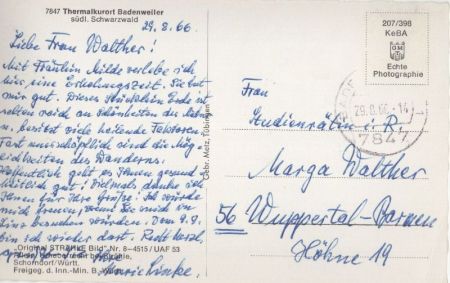 7847 Thermalkurort Badenweiler
südl. Schwarzwald
29.8.66.
Liebe Frau Walther!
Mit Fräulein Milde verlebe ich
hier eine Erholungszeit. Sie tut
mir gut. Dieses Stückchen Erde ist
selten reich an Schönheiten der Natur
u. besitzt viele heilende Faktoren.
Fast unerschöpflich sind die Mög-
lichkeiten des Wanderns.
Hoffentlich geht es Ihnen gesund-
heitlich gut! Vielmals danke ich
Ihnen für Ihre Grüße. Ich würde
mich freuen, wenn Sie mich in
besuchen würden. Vom 9.9.
bin ich wieder dort. Recht herzl.
Linke.
"Original STRÄHLE Bild" Nr. 8-4515 / UAF 53
Schorndorf/Württ.
Freigeg. d. Inn.-Min. B.
Gebr. Metz, Tübingen
207/398
KeBA
Echte
Photographie
29.8.66-14
7847
Frau
Studienrätin i. R.
Marga Walther
56 Wuppertal-Barmen
Höhne 19